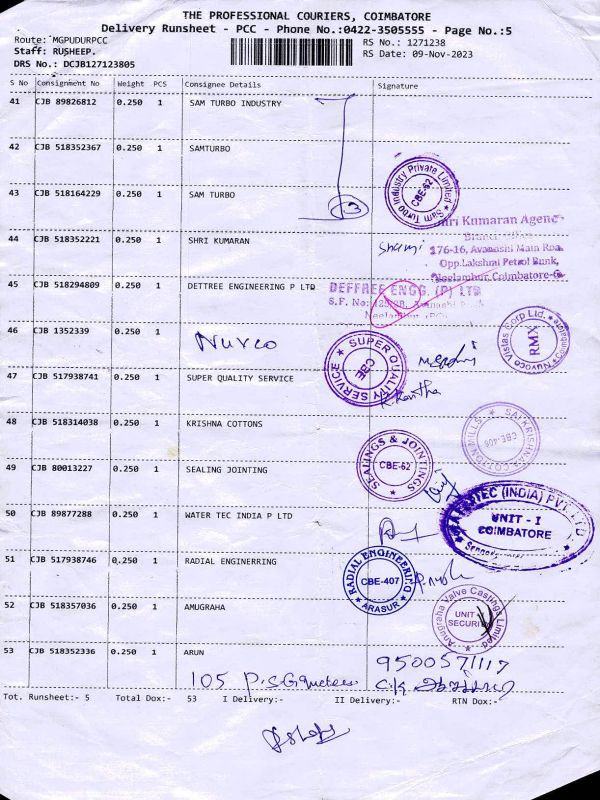 THE PROFESSIONAL COURIERS, COIMBATORE
Delivery Runsheet - PCC - Phone No.:0422-3505555 - Page No.:5
Route: MGPUDURPCC RS No.: 1271238
Staff: RUSHEEP. RS Date: 09-Nov-2023
DRS No.: DCJB127123805
S No Consignment No Weight PCS Consignee Details Signature
41 CJB 89826812 0.250 1 SAM TURBO INDUSTRY
42 CJB 518352367 0.250 1 SAMTURBO
Sam Turbo Industry Private Limited
CBE-62
43 CJB 518164229 0.250 1 SAM TURBO
3
Shri Kumaran Agency
44 CJB 518352221 0.250 1 SHRI KUMARAN
176-16, Avanashi Main Roa
Opp.Lakshmi Petrol Bunk,
Neelambur, Coimbatore-6
45 CJB 518294809 0.250 1 DETTREE ENGINEERING P LTD
DEFFREE ENGG. (P) LTD
S.F. No:
46 CJB 1352339 0.250 1
Nuvco
Nuvoco Vistas Corp Ltd. Coimbatore
RMX
SUPER QUALITY SERVICE
CBE
47 CJB 517938741 0.250 1 SUPER QUALITY SERVICE
48 CJB 518314038 0.250 1 KRISHNA COTTONS
SAI KRISHNA COTTON MILLS
CBE-406
49 CJB 80013227 0.250 1 SEALING JOINTING
SEALINGS & JOINTINGS
CBE-62
50 CJB 89877288 0.250 1 WATER TEC INDIA P LTD
WATERTEC (INDIA) PVT LTD
UNIT - I
COIMBATORE
51 CJB 517938746 0.250 1 RADIAL ENGINERRING
RADIAL ENGINEERING
CBE-407
ARASUR
52 CJB 518357036 0.250 1 AMUGRAHA
Anugraha Valve Castings Limited
UNIT
SECURITY
53 CJB 518352336 0.250 1 ARUN
9500571117
105 P.S.G
Tot. Runsheet:- 5 Total Dox:- 53 I Delivery:- II Delivery:- RTN Dox:-